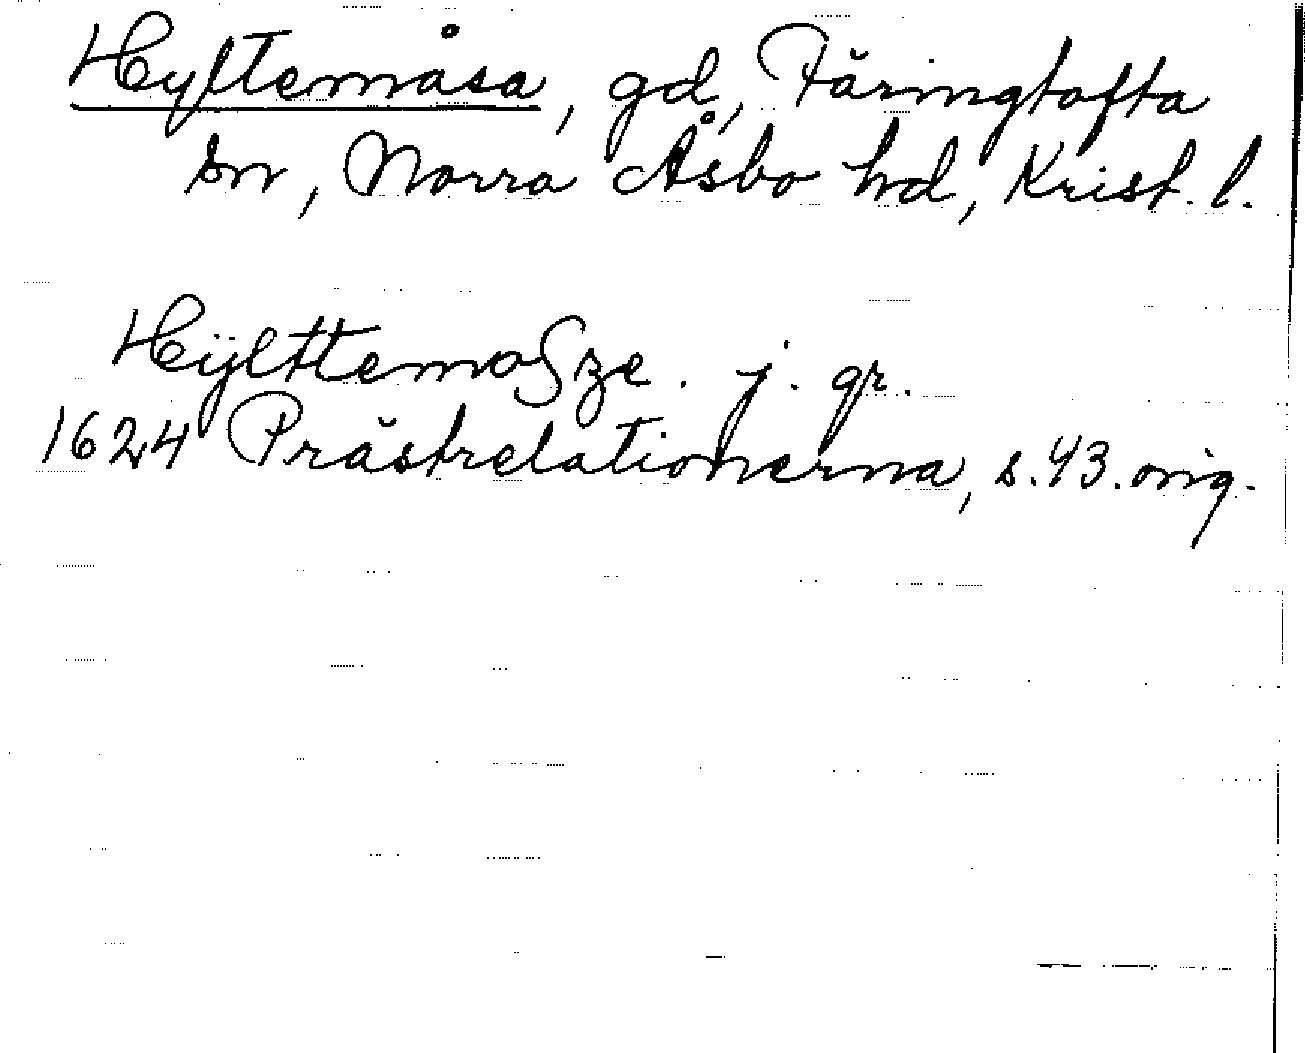 Hyltemåsa, gd, Färingtofta
sn, Norra Åsbo hd, Krist. l.
Hÿlttemoßze. j. gr.
1624 Prästrelationerna, s. 43. orig.